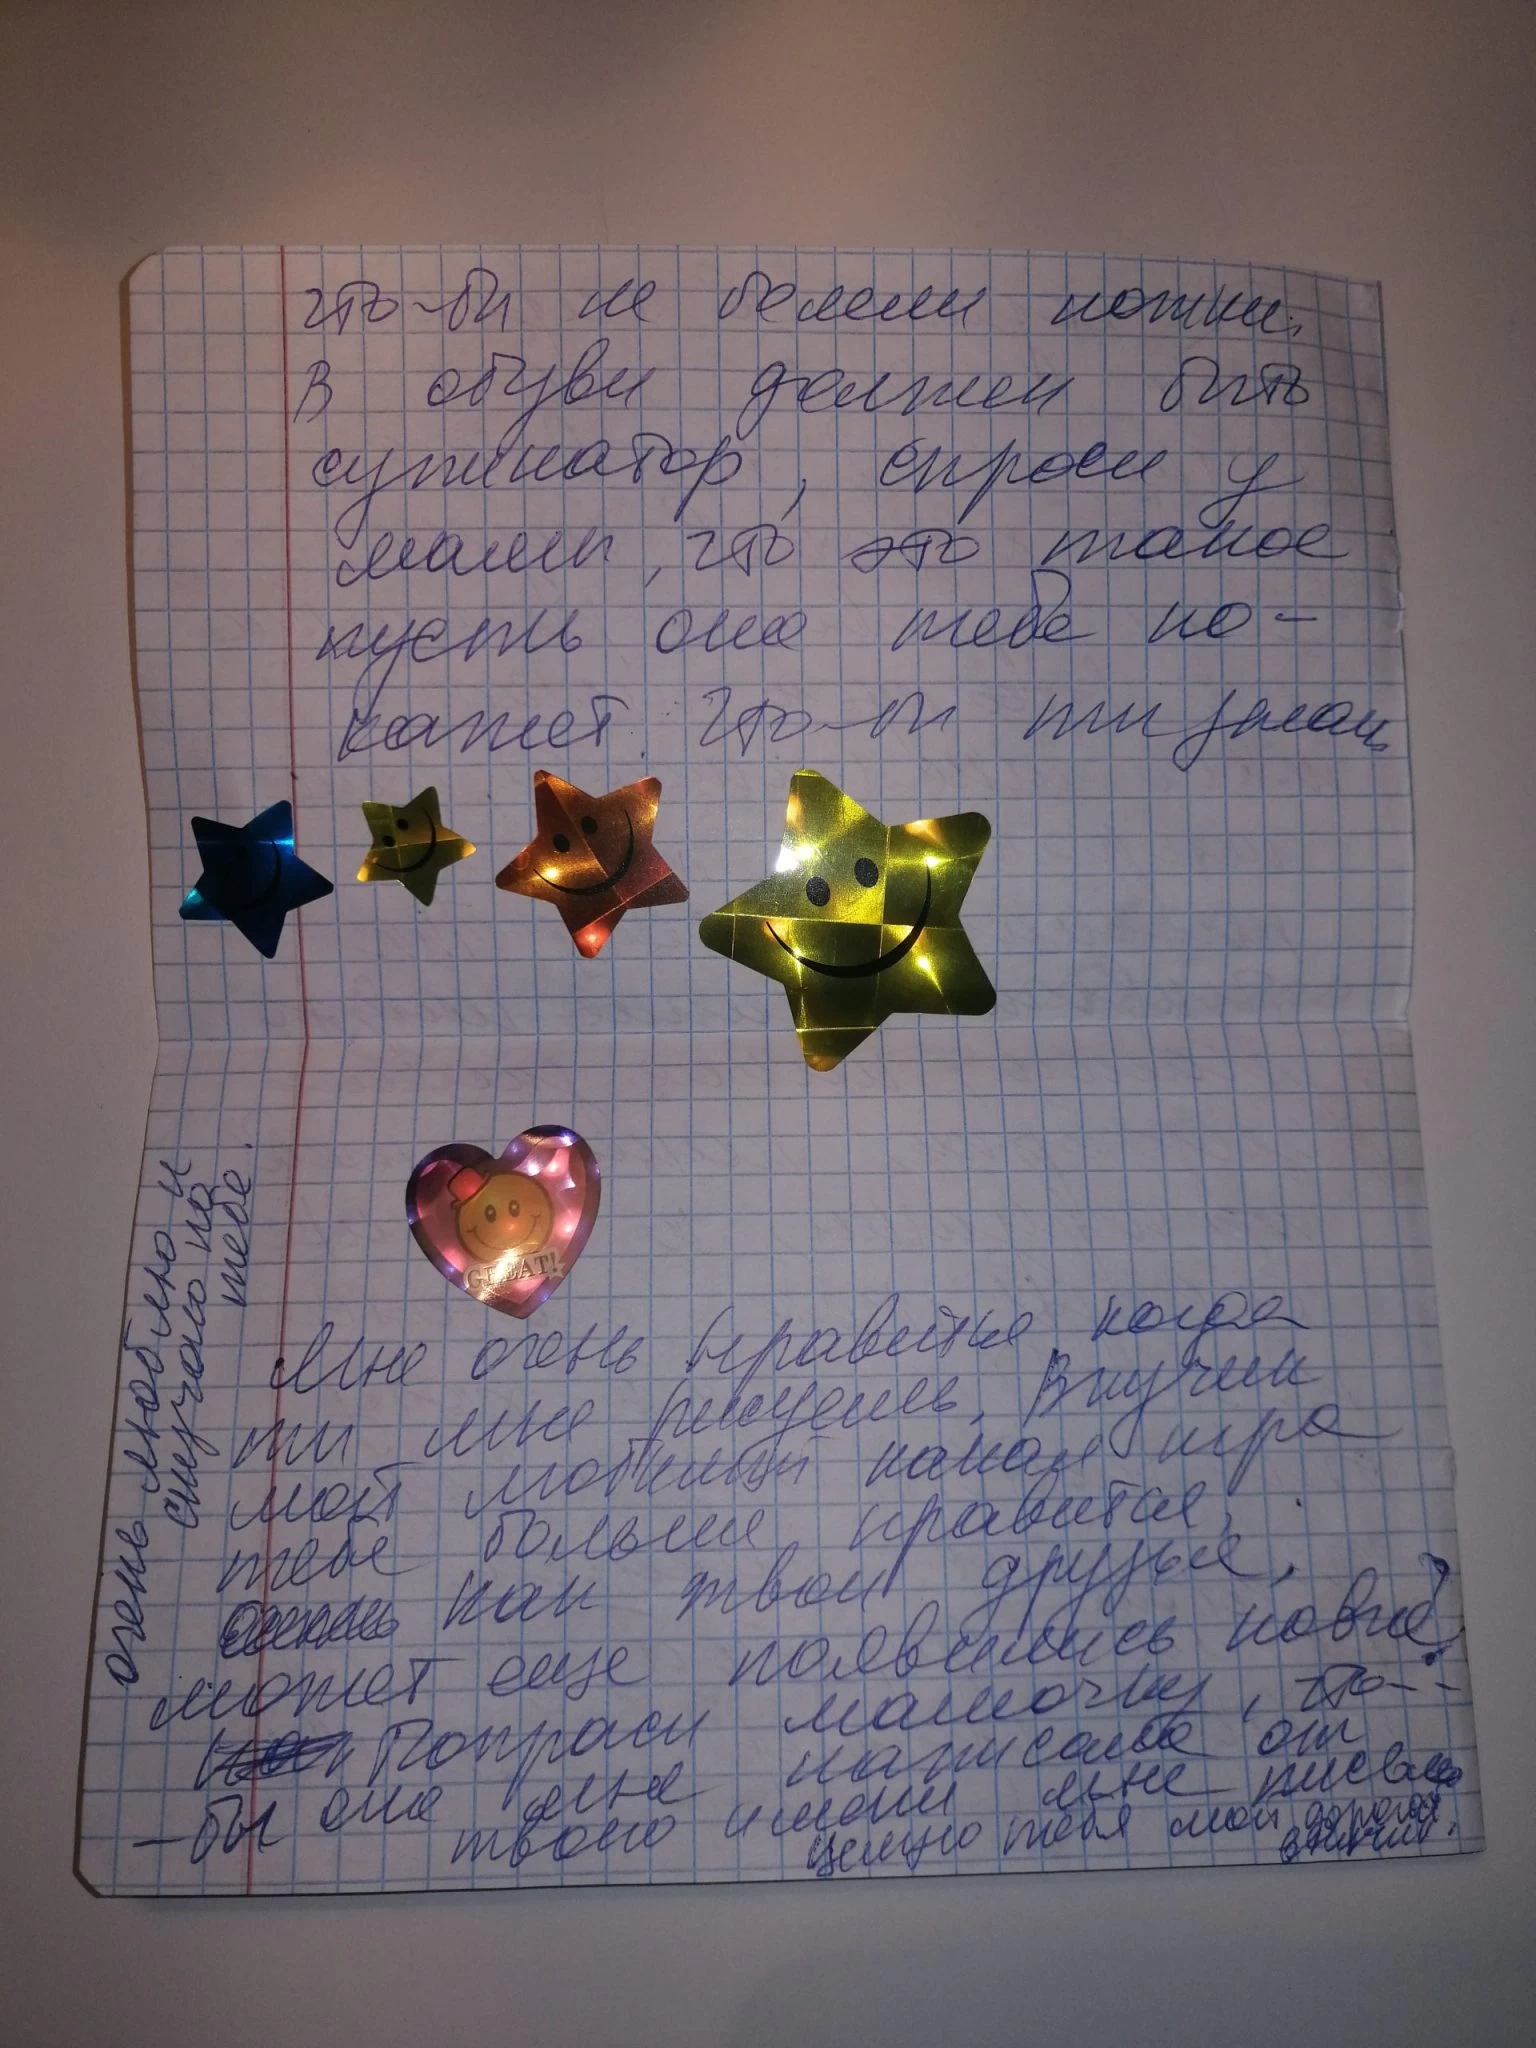 что-бы не болели ножки.
В обуви должен быть
супинатор, спроси у
мамы, что это такое
пусть она тебе по-
кажет. что-бы ты знал
GREAT!
Мне очень нравится когда
ты мне рисуешь. Внучек
мой любимый какая игра
тебе больше нравится,
как твои друзья,
может еще появились новые?
Попроси мамочку, что-
-бы она мне написала от
твоего имени мне письмо
целую тебя мой дорогой
внучик.
очень люблю и
скучаю по
тебе.